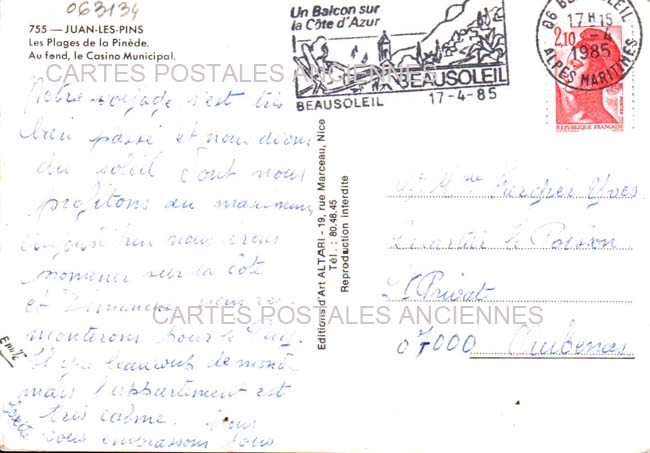 063134
755 — JUAN-LES-PINS
Les Plages de la Pinède.
Au fond, le Casino Municipal.
Un Balcon sur
la Côte d'Azur
BEAUSOLEIL
BEAUSOLEIL 17-4-85
06 BEAUSOLEIL
17H15
-4
1985
ALPES MARITIMES
2,10
POSTES
REPUBLIQUE FRANÇAISE
CARTES POSTALES ANCIENNES
Notre voyage s'est très
bien passé et nous
du soleil dont nous
profitons au maximum
aujourd'hui nous irons
promener sur la côte
et Dimanche nous re
monterons pour le
Il y a beaucoup de monde
mais l'appartement est
très calme. nous
vous embrassons tous
Editions d'Art ALTARI - 19, rue Marceau, Nice
Tél. : 80.48.45
Reproduction interdite
Mr Mme Yves
Quartier le
St Privat
07000 Aubenas
CARTES POSTALES ANCIENNES